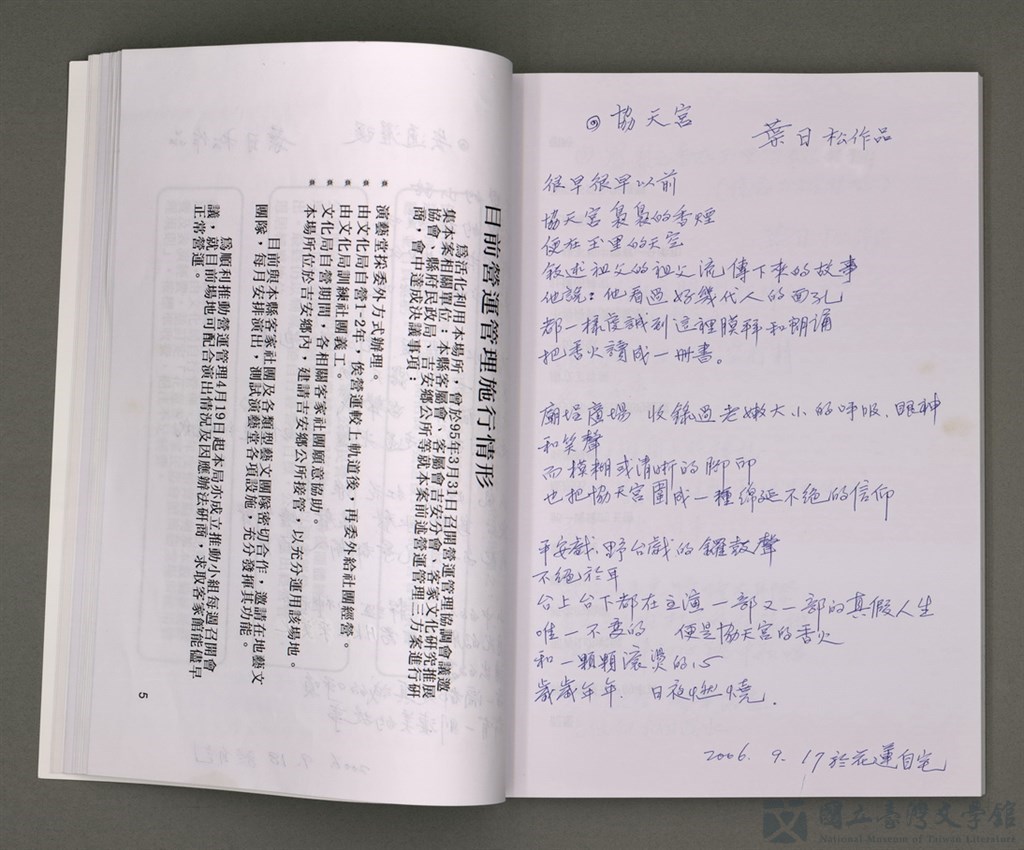 目前營運管理施行情形
為活化利用本場所，曾於95年3月31日召開營運管理協調會議邀
集本案相關單位：本縣客屬會、客屬會吉安分會、客家文化研究推展
協會、縣府民政局、吉安鄉公所等就本案前述營運管理三方案進行研
商，會中達成決議事項：
演藝堂採委外方式辦理。
由文化局自營1-2年，俟營運較上軌道後，再委外給社團經營。
由文化局訓練社團義工。
文化局自營期間，各相關客家社團願意協助。
本場所位於吉安鄉內，建請吉安鄉公所接管，以充分運用該場地。
目前與本縣客家社團及各類型藝文團隊密切合作，邀請在地藝文
團隊，每月安排演出，測試演藝堂各項設施，充分發揮其功能。
為順利推動營運管理4月19日起本局亦成立推動小組每週召開會
議，就目前場地可配合演出情況及因應辦法研商，求取客家館能儘早
正常營運。
5
◎ 協天宮
葉日松作品
很早很早以前
協天宮裊裊的香煙
便在玉里的天空
敘述祖父的祖父流傳下來的故事
他說：他看過好幾代人的面孔
都一樣虔誠到這裡膜拜和朗誦
把香火讀成一冊書。
廟埕廣場 收錄過老嫩大小的呼吸、眼神
和笑聲
而模糊或清晰的腳印
也把協天宮圍成一種綿延不絕的信仰
平安戲、野台戲的鑼鼓聲
不絕於耳
台上台下都在主演一部又一部的真假人生
唯一不變的 便是協天宮的香火
和一顆顆滾燙的心
歲歲年年、日夜燃燒。
2006. 9. 17 於花蓮自宅
國立臺灣文學館
National Museum of Taiwan Literature